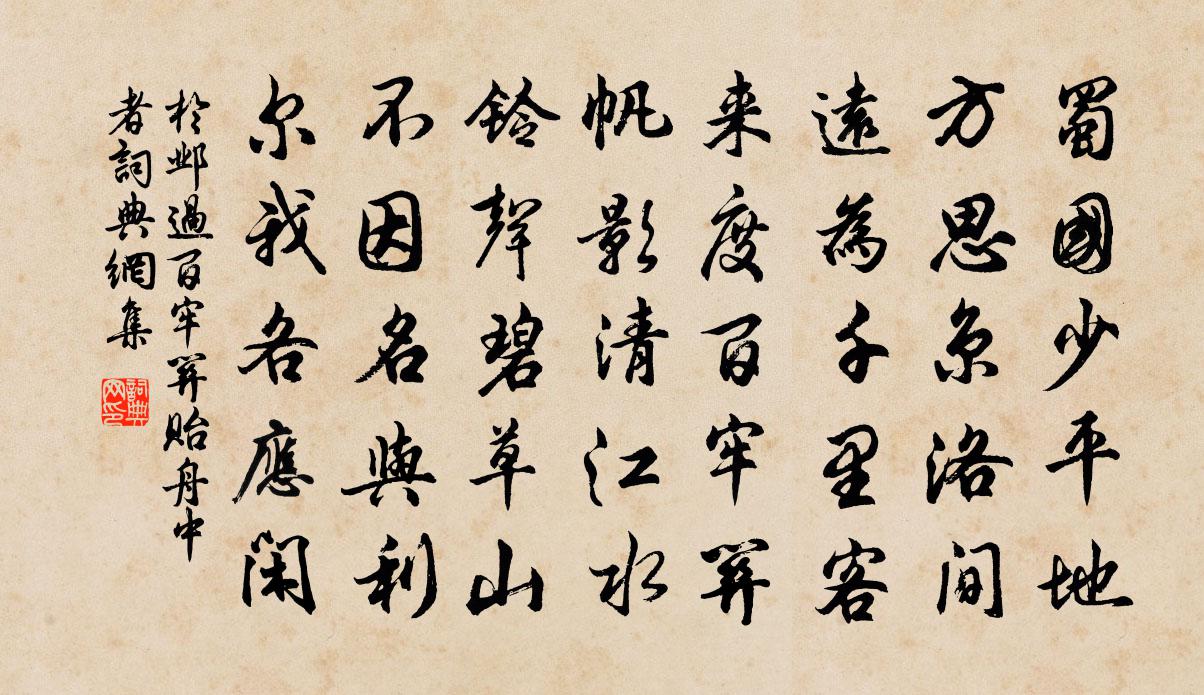 蜀國少平地
方思京洛間
遠為千里客
来度百牢關
帆影清江水
鈴聲碧草山
不因名與利
尔我各應閑
於鄴過百牢關貽舟中
者詞典網集
詞典
网印